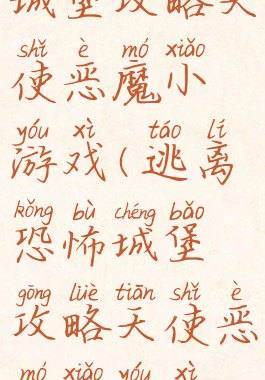 城堡攻略天
shǐ è mó xiǎo
使恶魔小
yóu xì táo lí
游戏(逃离
kǒng bù chéng bǎo
恐怖城堡
gōng lüè tiān shǐ è
攻略天使恶
mó xiǎo yóu xì